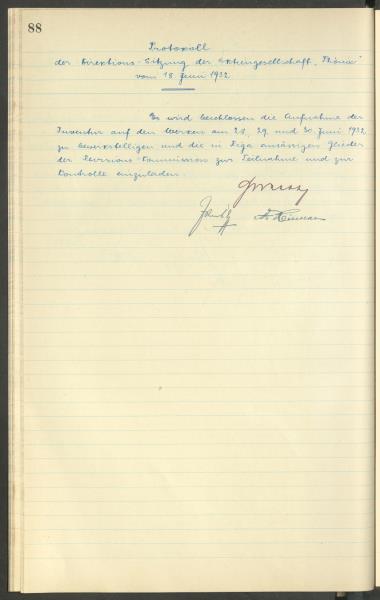 88
Protokoll
der Direktions-Sitzung der Aktiengesellschaft „Phönix"
vom 18 Juni 1932
Es wird beschlossen die Aufnahme der
Inventur auf den Werken am 28, 29, und 30. Juni 1932
zu bewerkstelligen und die in Riga ansässigen Glieder
der Revisions-Kommission zur Teilnahme und zur
Kontrolle einzuladen.